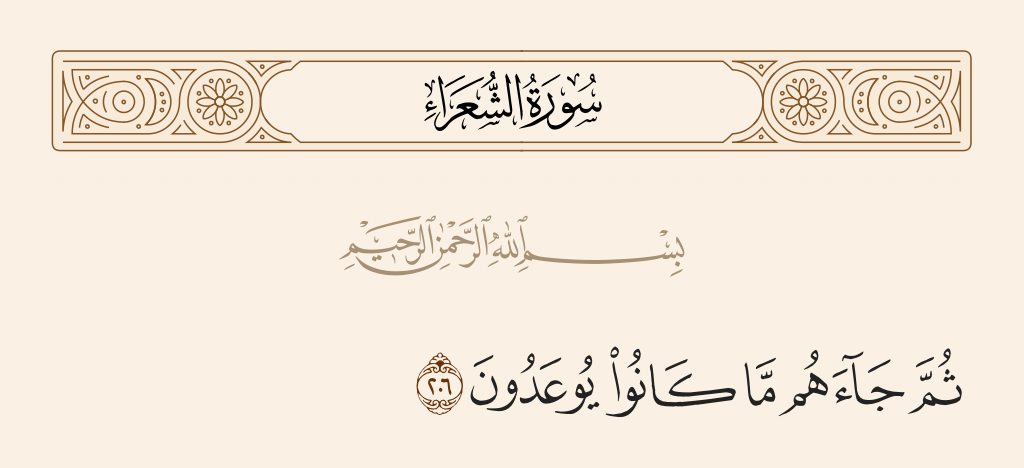 سُورَةُ الشُّعَرَاءِ
بِسْمِ ٱللَّهِ ٱلرَّحْمَٰنِ ٱلرَّحِيمِ
ثُمَّ جَآءَهُم مَّا كَانُوا۟ يُوعَدُونَ ٢٠٦